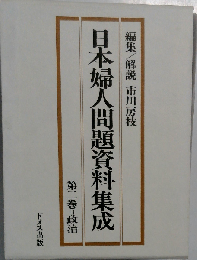 編集/解説 市川房枝
日本婦人問題資料集成
第二巻=政治
ドメス出版